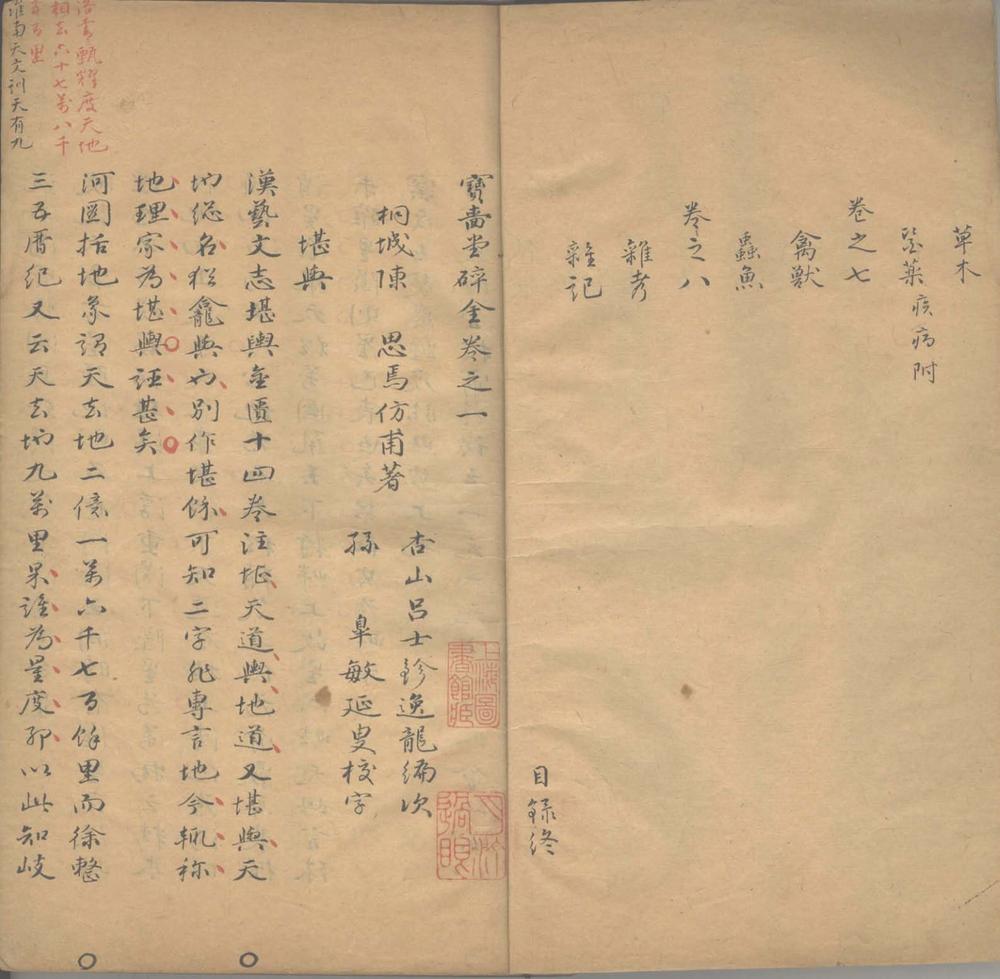 草木
醫藥 疾病附
卷之七
禽獸
蟲魚
卷之八
雜考
雜記
目録終
寶嗇堂碎金卷之一
桐城陳 思馬仿甫著
杏山呂士鉁逸龍編次
孫 皐敏延叟校字
堪輿
漢藝文志堪輿金匱十四卷注堪天道輿地道又堪輿天
地総名猶龕輿也別作堪餘可知二字非專言地今輒称
地理家為堪輿誣甚矣
河圖括地象謂天去地二億一萬六千七百餘里而徐整
三五曆紀又云天去地九萬里果誰為量度耶以此知岐
洛書甄耀度天地
相去六十七萬八千
五百里
淮南天文訓天有九
上海圖書館藏